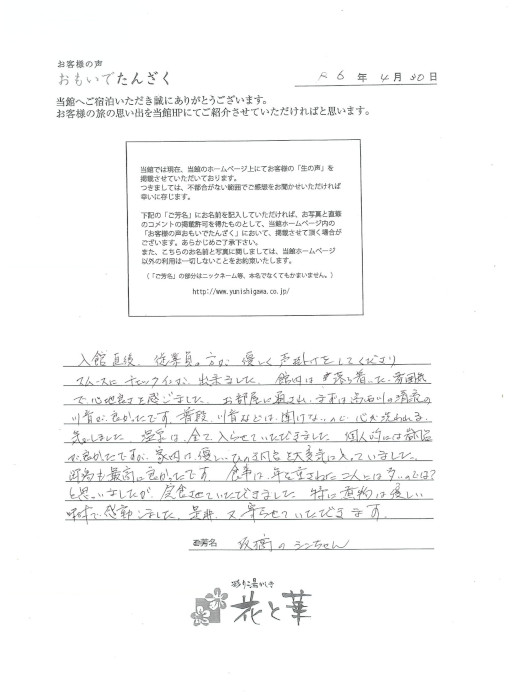 お客様の声
おもいでたんざく
R6年4月30日
当館へご宿泊いただき誠にありがとうございます。
お客様の旅の思い出を当館HPにてご紹介させていただければと思います。
当館では現在、当館のホームページ上にてお客様の「生の声」を
掲載させていただいております。
つきましては、不都合がない範囲でご感想をお聞かせいただければ
幸いに存じます。
下記の「ご芳名」にお名前を記入していただければ、お写真と直筆
のコメントの掲載許可を得たものとして、当館ホームページ内の
「お客様の声おもいでたんざく」において、掲載させて頂く場合が
ございます。あらかじめご了承下さい。
また、こちらのお名前と写真に関しましては、当館ホームページ
以外の利用は一切しないことをお約束いたします。
（「ご芳名」の部分はニックネーム等、本名でなくてもかまいません。）
http://www.yunishigawa.co.jp/
入館直後、従業員の方が優しく声掛けをしてくださり
スムーズにチェックインが出来ました。館内は落ち着いた雰囲気
で心地良さを感じました。お部屋に通され、まずは の清流の
川音が良かったです。普段、川音などは聞けないので心が洗われる
しました。温泉は、全て入らせていただきました。個人的には
が良かったですが、家内は、 大変気に入っていました。
も最高に良かったです。食事は、年を重ねた二人には多いのでは？
と思いましたが、完食させていただきました。特に煮物は優しい
味で感動しました。是非、又寄らせていただきます。
ご芳名 板橋のシンちゃん
彩り湯かしき
花と華